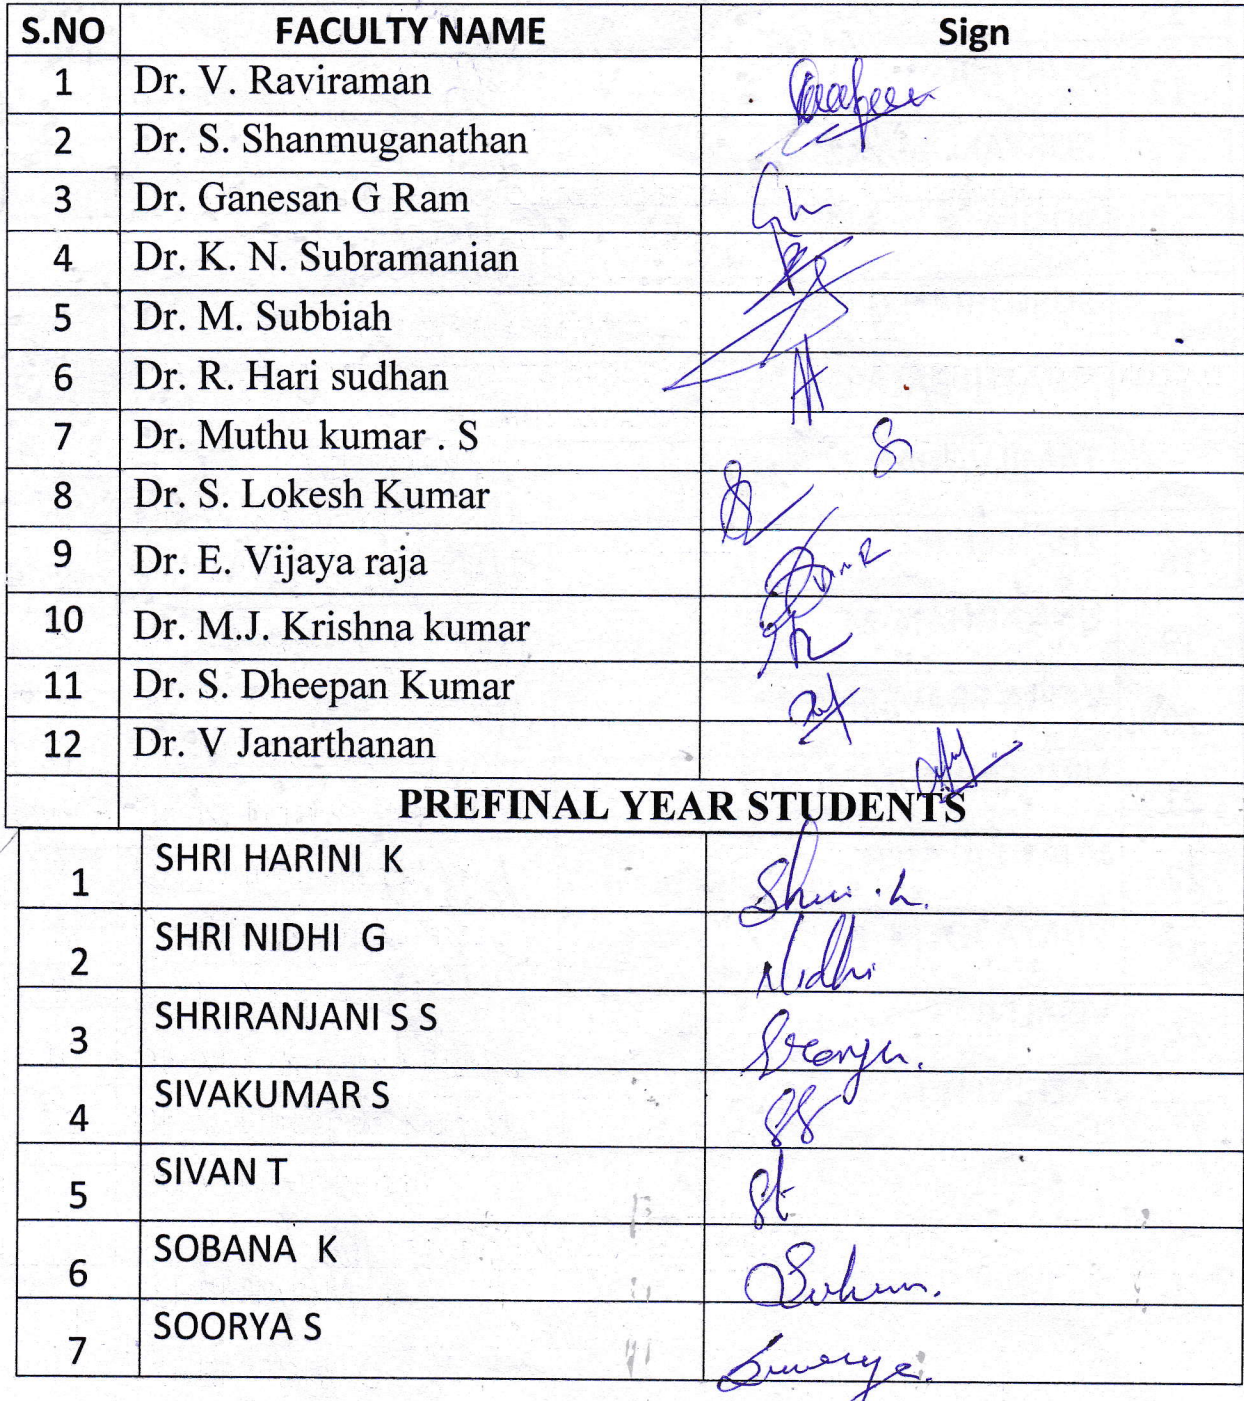 S.NO FACULTY NAME Sign
1 Dr. V. Raviraman
2 Dr. S. Shanmuganathan
3 Dr. Ganesan G Ram
4 Dr. K. N. Subramanian
5 Dr. M. Subbiah
6 Dr. R. Hari sudhan
7 Dr. Muthu kumar . S
8 Dr. S. Lokesh Kumar
9 Dr. E. Vijaya raja
10 Dr. M.J. Krishna kumar
11 Dr. S. Dheepan Kumar
12 Dr. V Janarthanan
PREFINAL YEAR STUDENTS
1 SHRI HARINI K
2 SHRI NIDHI G Nidhi
3 SHRIRANJANI S S
4 SIVAKUMAR S
5 SIVAN T
6 SOBANA K
7 SOORYA S